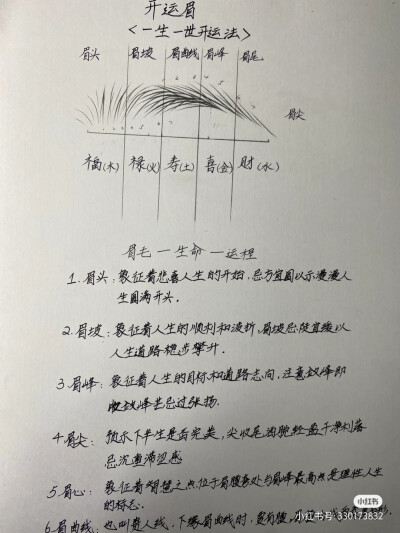 开运眉
<一生一世开运法>
眉头 眉坡 眉曲线 眉峰 眉尾
眉尖
福(木) 禄(火) 寿(土) 喜(金) 财(水)
眉毛一生命一运程
1. 眉头: 象征着悲喜人生的开始, 忌方宜圆以示漫漫人
生圆满开头.
2. 眉坡: 象征着人生的顺利和波折, 眉坡忌陡宜缓以
人生道路稳步攀升.
3. 眉峰: 象征着人生的目标和道路志向, 注意
峰芒忌过张扬.
4. 眉尖: 预示下半生是否完美, 尖收尾 轻盈干净利落
忌沉重滞涩感
5. 眉心: 象征着智慧之点, 位于眉腰 处与眉峰最高点是理性人生
的标志.
6. 眉曲线: 也叫贵人线. 下 眉曲线时,
小红书
小红书号: 330173832